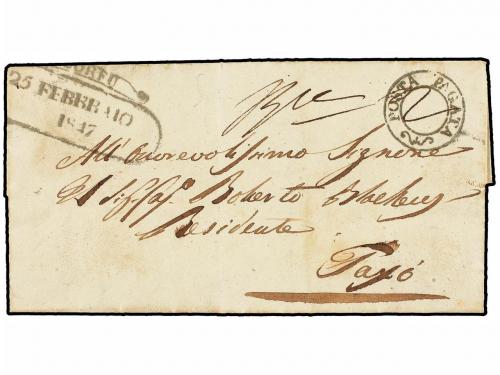 25 FEBBRAIO
1847
POSTA PAGATA
All' Onorevolissimo Signore
Il Sig. Roberto
Residente
Paxò